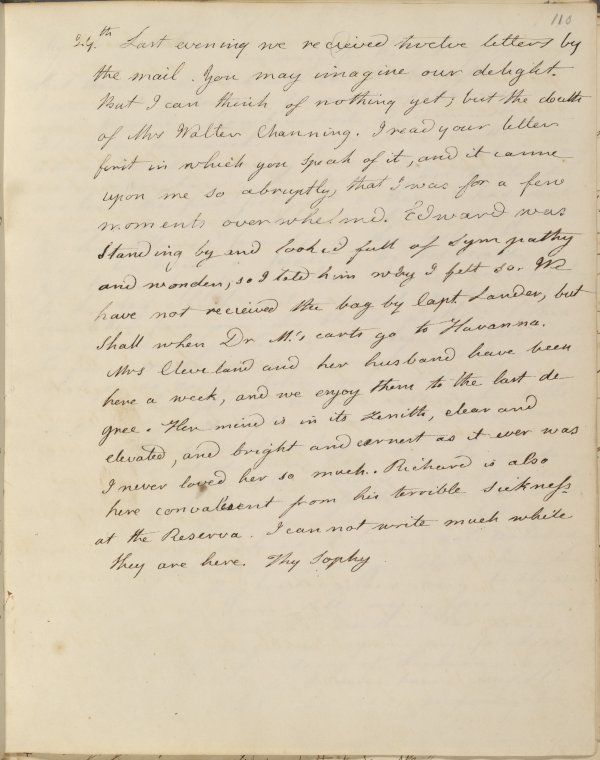 110
24.th Last evening we recieved twelve letters by
the mail. You may imagine our delight.
But I can think of nothing yet, but the death
of Mrs Walter Channing. I read your letter
first in which you speak of it, and it came
upon me so abruptly, that I was for a few
moments overwhelmed. Edward was
standing by and looked full of sympathy
and wonder, so I told him why I felt so. We
have not recieved the bag by Capt Lander, but
shall when Dr M.'s carts go to Havanna.
Mrs Cleveland and her husband have been
here a week, and we enjoy them to the last de-
gree. Her mind is in its zenith, clear and
elevated, and bright and earnest as it ever was
I never loved her so much. Richard is also
here convalescent from his terrible sickness
at the Reserva. I can not write much while
they are here. Thy Sophy